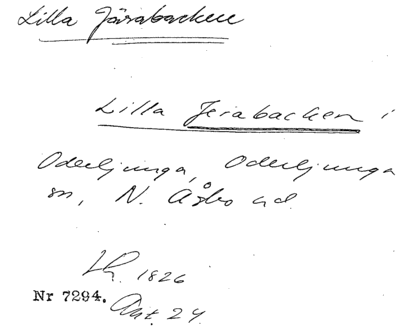 Lilla Järabacken
Lilla Jerabacken i
Oderljunga, Oderljunga
sn, N. Åsbo hd.
Lh. 1826
Nr 7294. Ant. 24